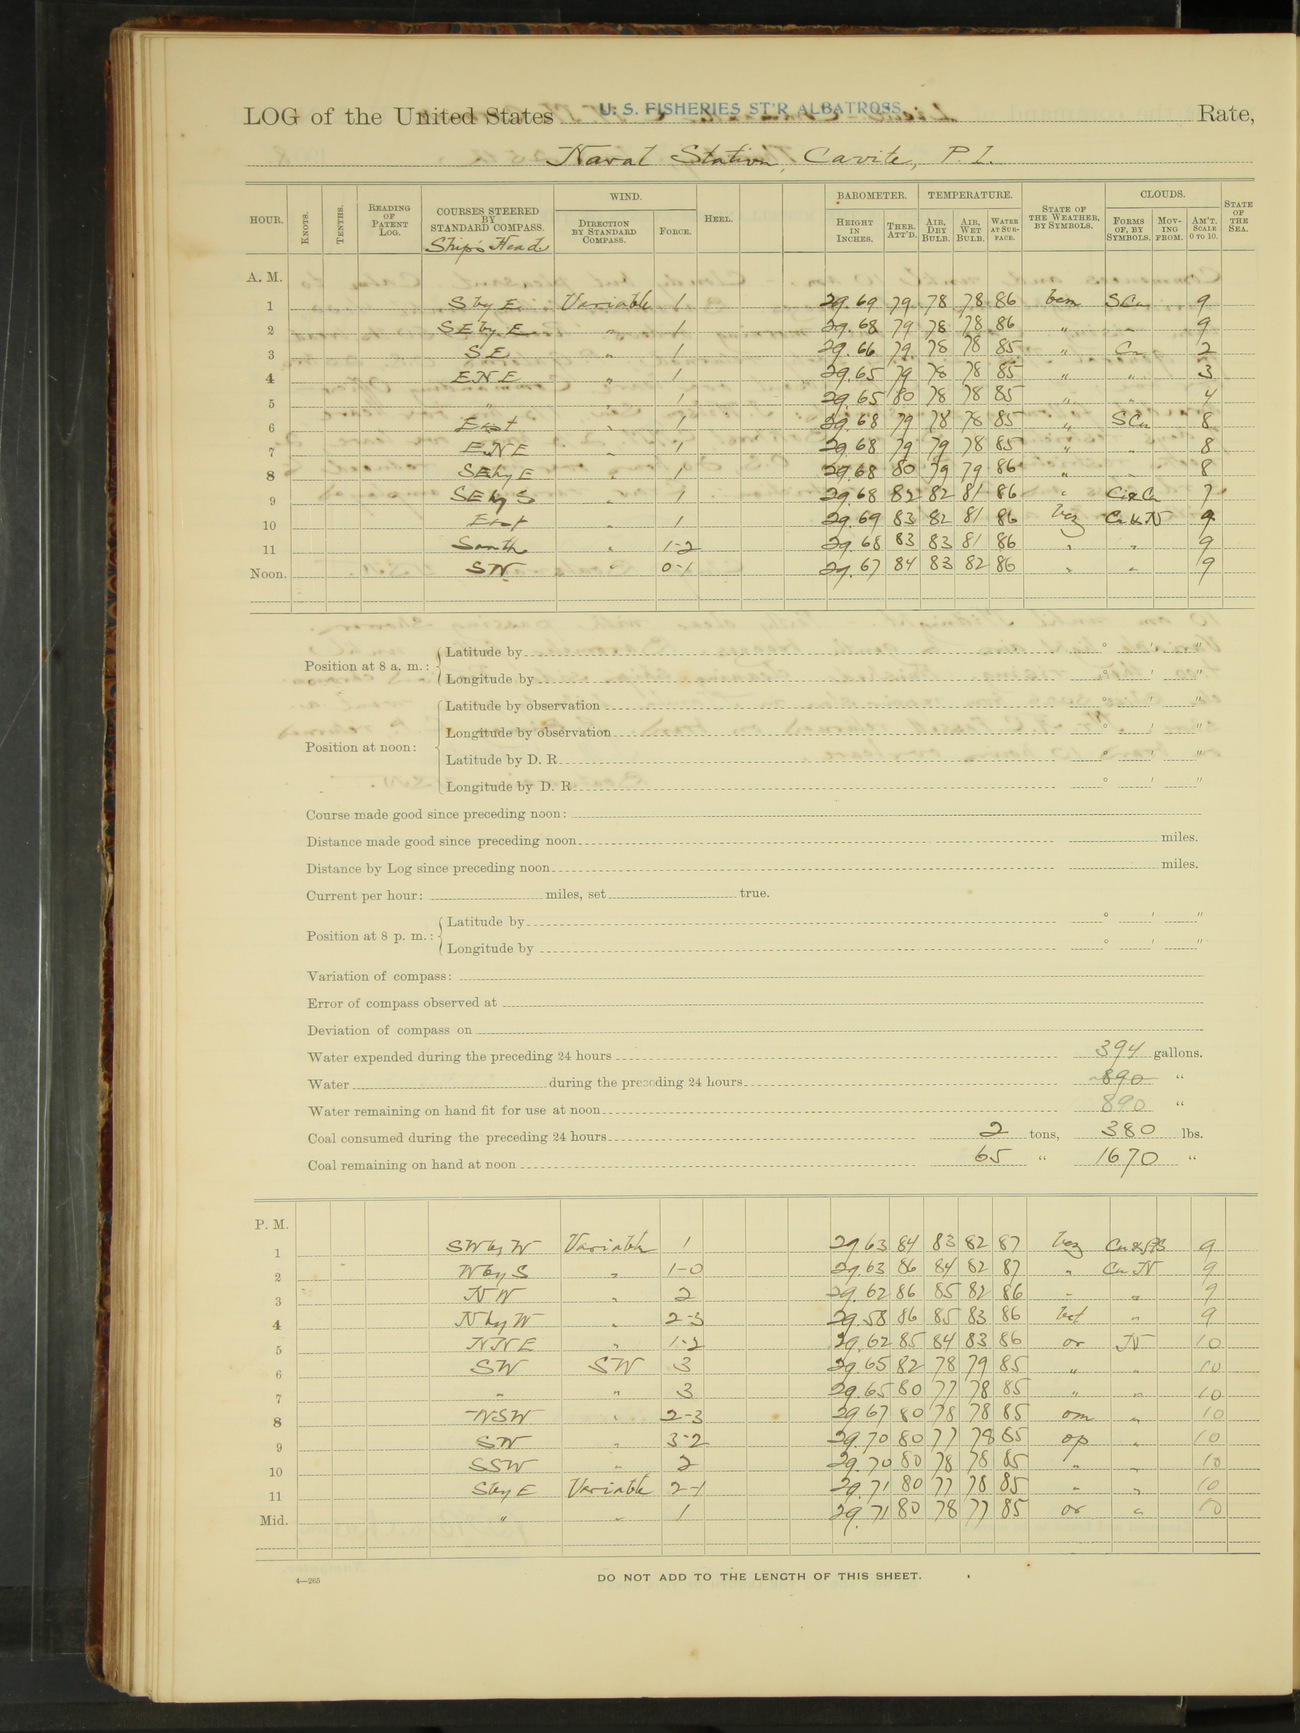 LOG of the United States U. S. FISHERIES ST'R ALBATROSS Rate,
Naval Station, Cavite, P. I.
HOUR. KNOTS. TENTHS. READING OF PATENT LOG. COURSES STEERED BY STANDARD COMPASS. Ship's Head WIND. DIRECTION BY STANDARD COMPASS. FORCE. HEEL. BAROMETER. HEIGHT IN INCHES. THER. ATT'D. TEMPERATURE. AIR, DRY BULB. AIR, WET BULB. WATER AT SURFACE. STATE OF THE WEATHER, BY SYMBOLS. CLOUDS. FORMS OF, BY SYMBOLS. MOVING FROM. AM'T. SCALE 0 TO 10. STATE OF THE SEA.
A. M.
1 S by E Variable 1 29.69 79 78 78 86 bcm S Cu 9
2 SE by E " 1 29.68 79 78 78 86 " " 9
3 SE " 1 29.66 79 78 78 85 " Cu 2
4 ENE " 1 29.65 79 78 78 85 " " 3
5 " " 1 29.65 80 78 78 85 " " 4
6 East " 1 29.68 79 78 78 85 " S Cu 8
7 ENE " 1 29.68 79 79 78 85 " " 8
8 SE by E " 1 29.68 80 79 79 86 " " 8
9 SE by S " 1 29.68 82 82 81 86 " Ci & Cu 7
10 East " 1 29.69 83 82 81 86 bcq Cu & N 9
11 South " 1-2 29.68 83 83 81 86 " " 9
Noon. SW " 0-1 29.67 84 83 82 86 " " 9
Position at 8 a. m.: Latitude by ° ' "
Longitude by ° ' "
Position at noon: Latitude by observation ° ' "
Longitude by observation ° ' "
Latitude by D. R. ° ' "
Longitude by D. R. ° ' "
Course made good since preceding noon:
Distance made good since preceding noon miles.
Distance by Log since preceding noon miles.
Current per hour: miles, set true.
Position at 8 p. m.: Latitude by ° ' "
Longitude by ° ' "
Variation of compass:
Error of compass observed at
Deviation of compass on
Water expended during the preceding 24 hours 394 gallons.
Water during the preceding 24 hours 890 "
Water remaining on hand fit for use at noon 890 "
Coal consumed during the preceding 24 hours 2 tons, 380 lbs.
Coal remaining on hand at noon 65 " 1670 "
P. M.
1 SW by W Variable 1 29.63 84 83 82 87 bcq 9
2 W by S " 1-0 29.63 86 84 82 87 " Cu N 9
3 NW " 2 29.62 86 85 82 86 " " 9
4 N by W " 2-3 29.58 86 85 83 86 " 9
5 NNE " 1-2 29.62 85 84 83 86 or N 10
6 SW SW 3 29.65 82 78 79 85 " " 10
7 " " 3 29.65 80 77 78 85 " " 10
8 WSW " 2-3 29.67 80 78 78 85 om " 10
9 SW " 3-2 29.70 80 77 78 85 op " 10
10 SSW " 2 29.70 80 78 78 85 " " 10
11 S by E Variable 2-1 29.71 80 77 78 85 " " 10
Mid. " " 1 29.71 80 78 77 85 or " 10
4—265
DO NOT ADD TO THE LENGTH OF THIS SHEET.